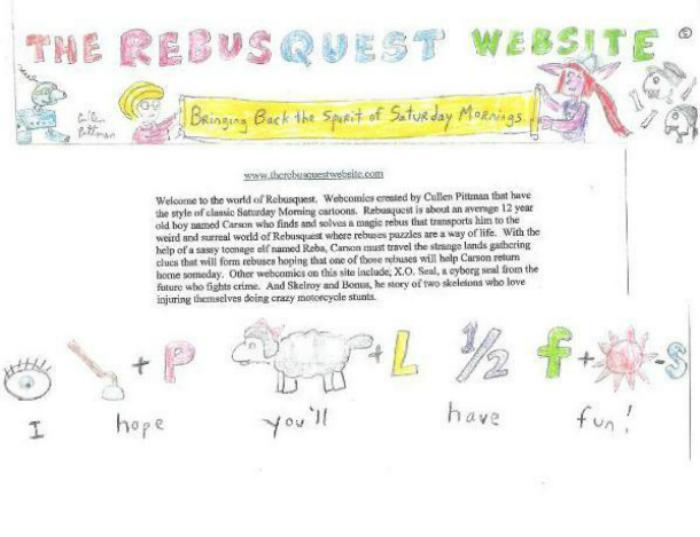 THE REBUSQUEST WEBSITE
Cullen Pittman
Bringing Back the Spirit of Saturday Mornings
www.therebusquestwebsite.com
Welcome to the world of Rebusquest. Webcomics created by Cullen Pittman that have
the style of classic Saturday Morning cartoons. Rebusquest is about an average 12 year
old boy named Carson who finds and solves a magic rebus that transports him to the
weird and surreal world of Rebusquest where rebuses puzzles are a way of life. With the
help of a sassy teenage elf named Reba, Carson must travel the strange lands gathering
clues that will form rebuses hoping that one of those rebuses will help Carson return
home someday. Other webcomics on this site include, X.O. Seal, a cyborg seal from the
future who fights crime. And Skelroy and Bonus, he story of two skeletons who love
injuring themselves doing crazy motorcycle stunts.
+ P + L 1/2 f + - S
I hope you'll have fun!